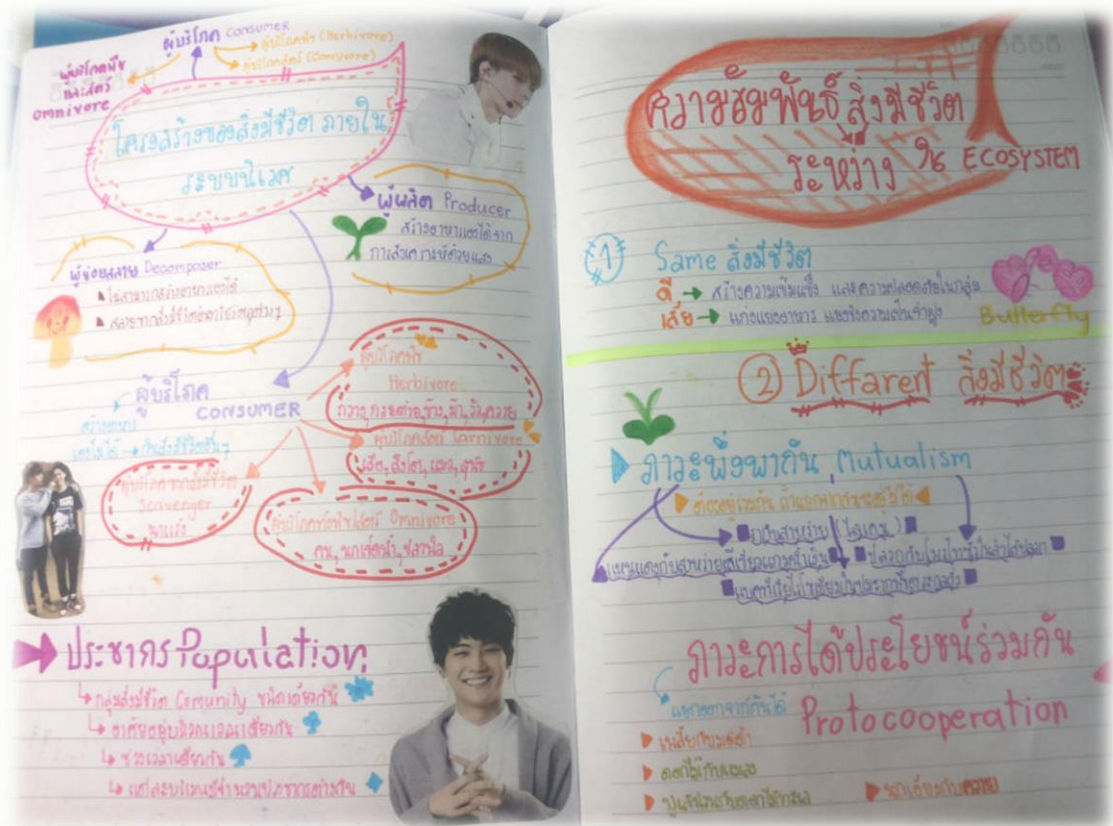 ผู้บริโภค Consumer
ผู้บริโภคพืช (Herbivore)
ผู้บริโภคสัตว์ (Carnivore)
ผู้บริโภคพืช
และสัตว์
omnivore
โครงสร้างของสิ่งมีชีวิต ภายใน
ระบบนิเวศ
ผู้ผลิต Producer
สร้างอาหารเองได้จาก
การสังเคราะห์ด้วยแสง
ผู้ย่อยสลาย Decomposer
ไม่สามารถสร้างอาหารเองได้
ผู้บริโภค
CONSUMER
สร้างอาหาร
เองไม่ได้ → กินสิ่งมีชีวิตอื่นๆ
ผู้บริโภคพืช
Herbivore
กวาง, กระต่าย, ช้าง, ม้า, วัว, ควาย
ผู้บริโภคสัตว์ Carnivore
เสือ, สิงโต, แมว, สุนัข
ผู้บริโภคซากสิ่งมีชีวิต
Scavenger
นกแร้ง
Omnivore
คน, นกเป็ดน้ำ, ปลานิล
ประชากร Population
กลุ่มสิ่งมีชีวิต Comunity ชนิดเดียวกัน
อาศัยอยู่บริเวณเดียวกัน
ช่วงเวลาเดียวกัน
แต่ละบริเวณมีจำนวนประชากรต่างกัน
ความสัมพันธ์ สิ่งมีชีวิต
ระหว่าง ใน ECOSYSTEM
1 Same สิ่งมีชีวิต
ดี → สร้างความเข้มแข็ง และความปลอดภัยในกลุ่ม
เสีย → แก่งแย่งอาหาร แย่งชิงความเป็นจ่าฝูง
Butterfly
2 Different สิ่งมีชีวิต
ภาวะพึ่งพากัน Mutualism
ต้องอยู่ร่วมกัน
รากับสาหร่าย (ไลเคน)
แหนแดงกับสาหร่ายสีเขียวแกมน้ำเงิน
ปลวกกับโพรโทซัวในลำไส้ปลวก
ภาวะการได้ประโยชน์ร่วมกัน
แยกออกจากกันได้ Protocooperation
เพลี้ยกับมดดำ
ดอกไม้กับแมลง
ปูเสฉวนกับดอกไม้ทะเล
นกเอี้ยงกับควาย